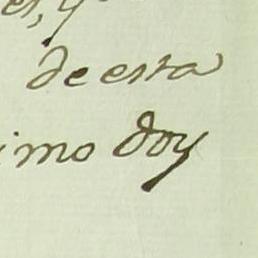 de esta
imo doy